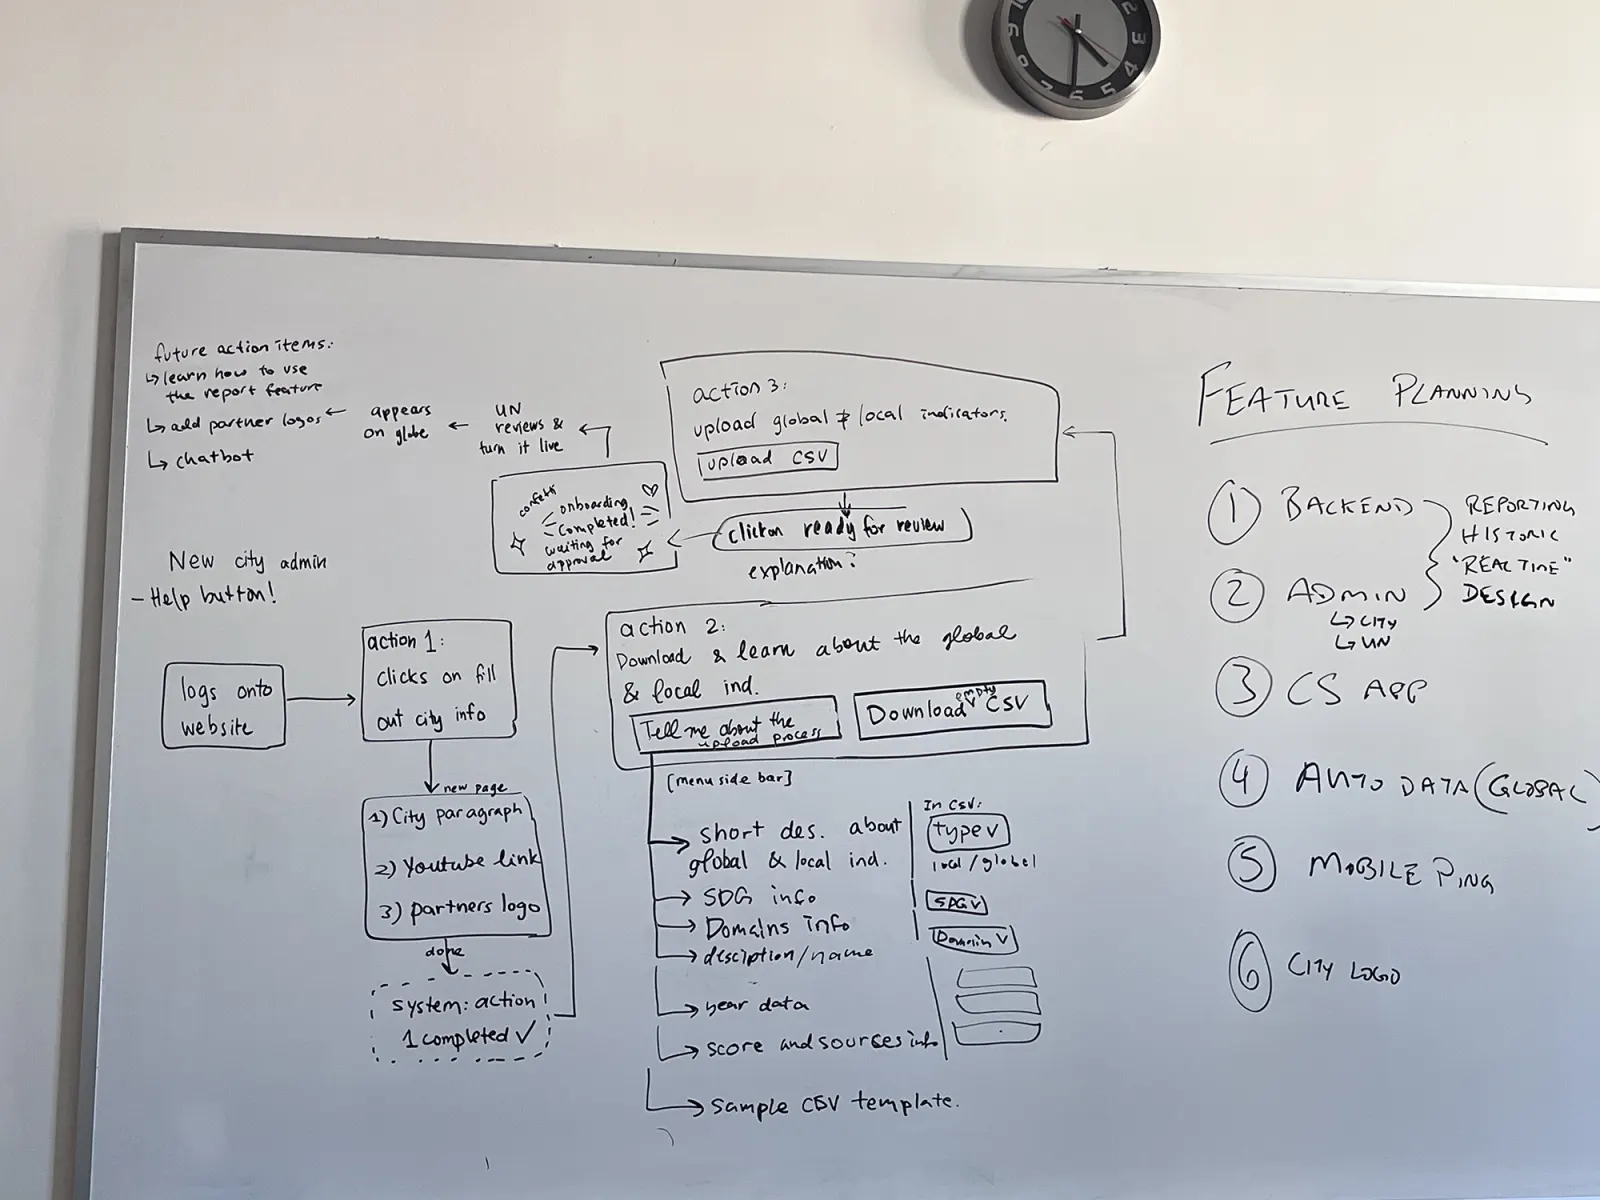 future action items:
↳ learn how to use
the report feature
↳ add partner logos
↳ chatbot
appears
on globe
UN
reviews &
turn it live
confetti
onboarding
completed!
waiting for
approval
action 3:
upload global & local indicators.
upload CSV
click on ready for review
explanation?
New city admin
- Help button!
logs onto
website
action 1:
clicks on fill
out city info
new page
1) City paragraph
2) Youtube link
3) partners logo
done
system: action
1 completed ✓
action 2:
Download & learn about the global
& local ind.
Tell me about the
upload process
Download empty CSV
[menu side bar]
short des. about
global & local ind.
SDG info
Domains info
desciption/name
year data
score and sources info
sample CSV template.
In CSV:
type v
local/global
SDG v
Domain v
FEATURE PLANNING
1 BACKEND
2 ADMIN
↳ CITY
↳ UN
REPORTING
HISTORIC
"REALTIME"
DESIGN
3 CS APP
4 AUTO DATA (GLOBAL)
5 MOBILE PING
6 CITY LOGO
10
9
8
7
6
5
4
3
2